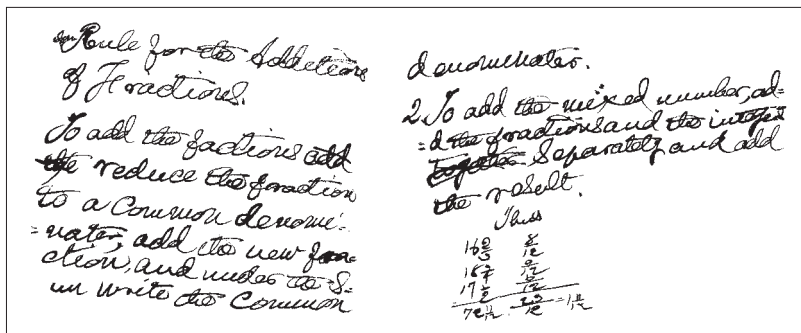 Rule for the Addetions
of Fractiones.
To add the factions add
the reduce the foraction
to a Common denomi=
=nater, add the new fra=
ction, and under the S=
um write the Common
denomenater.
2. To add the mixed number, ad=
=d the fractions and the integers
together Separately and add
the result.
Thus
16 2/3 8/12